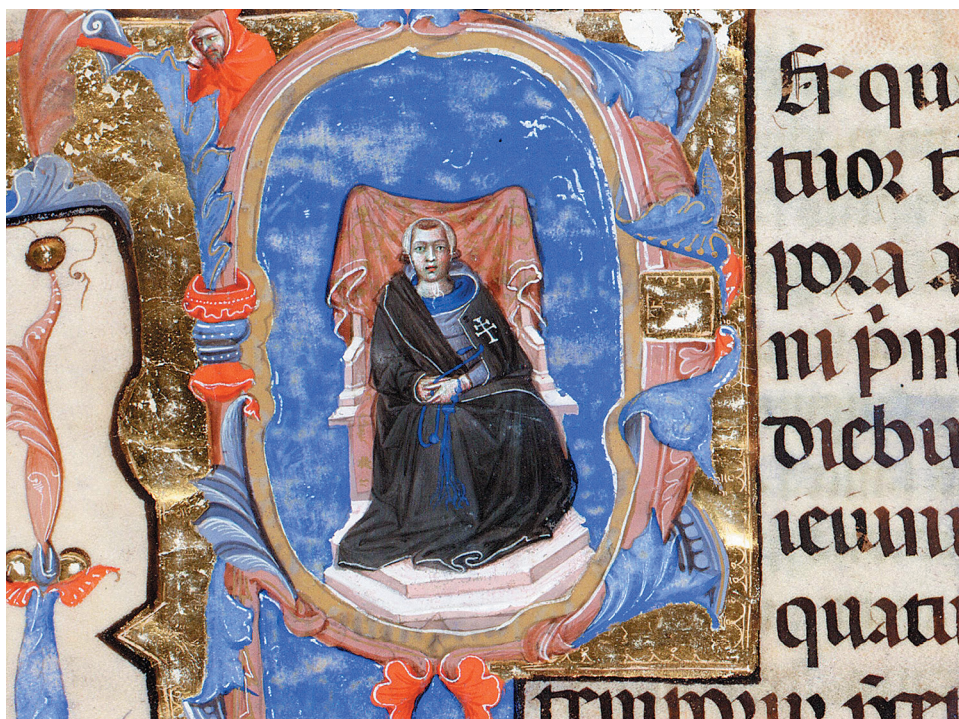 Et qu
tuor t
pora a
ni p̄m
diebu
ieiuni
quatu